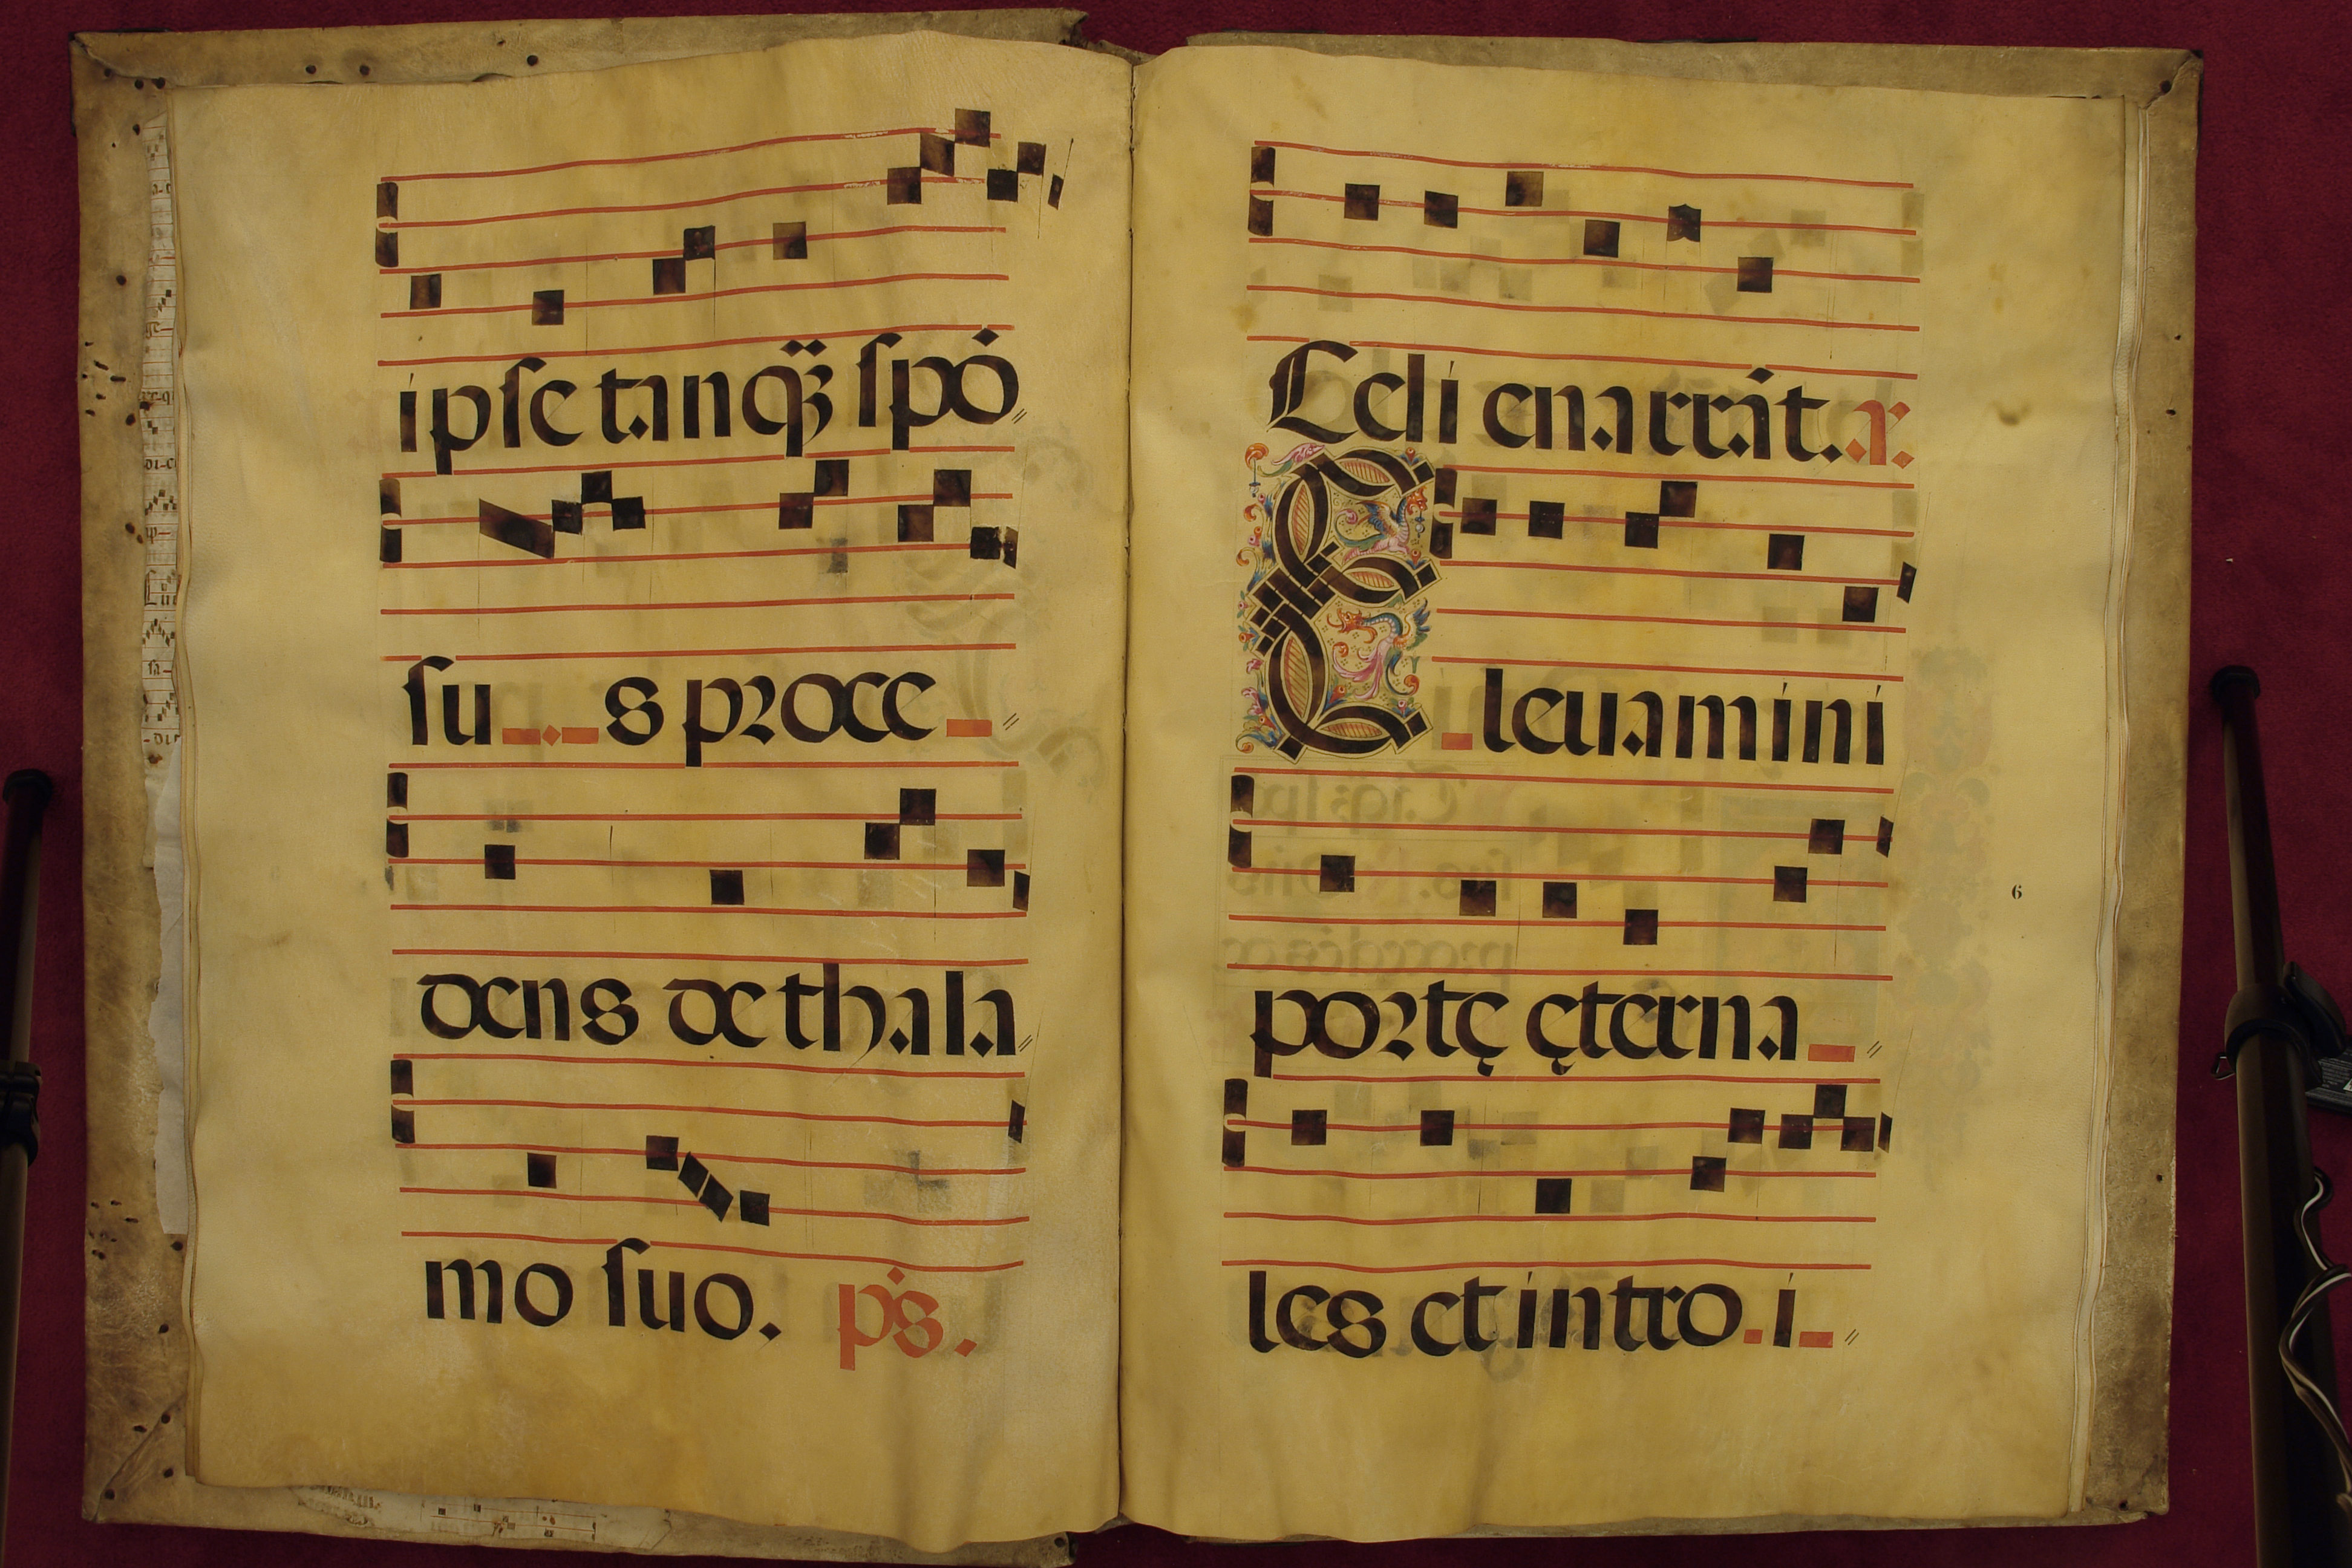 ipse tanqȝ̃ spó
su s proce
dens de thala
mo suo. p̄s.
Celi enarrāt. a.
E leuamini
portę ęterna
les et intro i
6